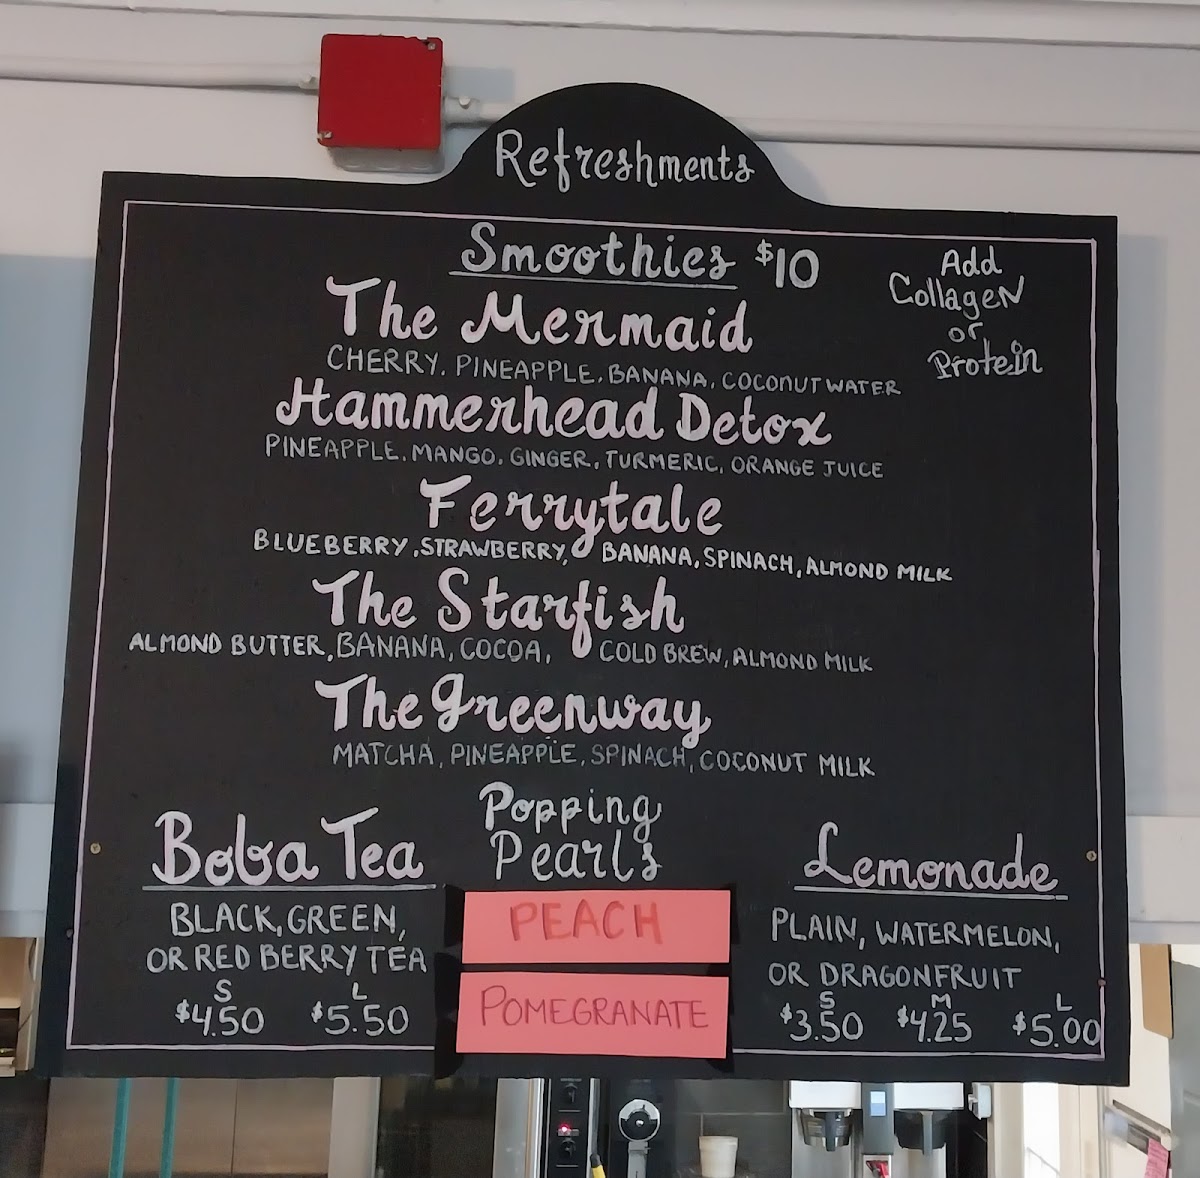 Refreshments
Smoothies $10
Add
Collagen
or
Protein
The Mermaid
CHERRY, PINEAPPLE, BANANA, COCONUT WATER
Hammerhead Detox
PINEAPPLE, MANGO, GINGER, TURMERIC, ORANGE JUICE
Ferrytale
BLUEBERRY, STRAWBERRY, BANANA, SPINACH, ALMOND MILK
The Starfish
ALMOND BUTTER, BANANA, COCOA, COLD BREW, ALMOND MILK
The Greenway
MATCHA, PINEAPPLE, SPINACH, COCONUT MILK
Boba Tea
BLACK, GREEN,
OR RED BERRY TEA
S L
$4.50 $5.50
Popping
Pearls
PEACH
POMEGRANATE
Lemonade
PLAIN, WATERMELON,
OR DRAGONFRUIT
S M L
$3.50 $4.25 $5.00